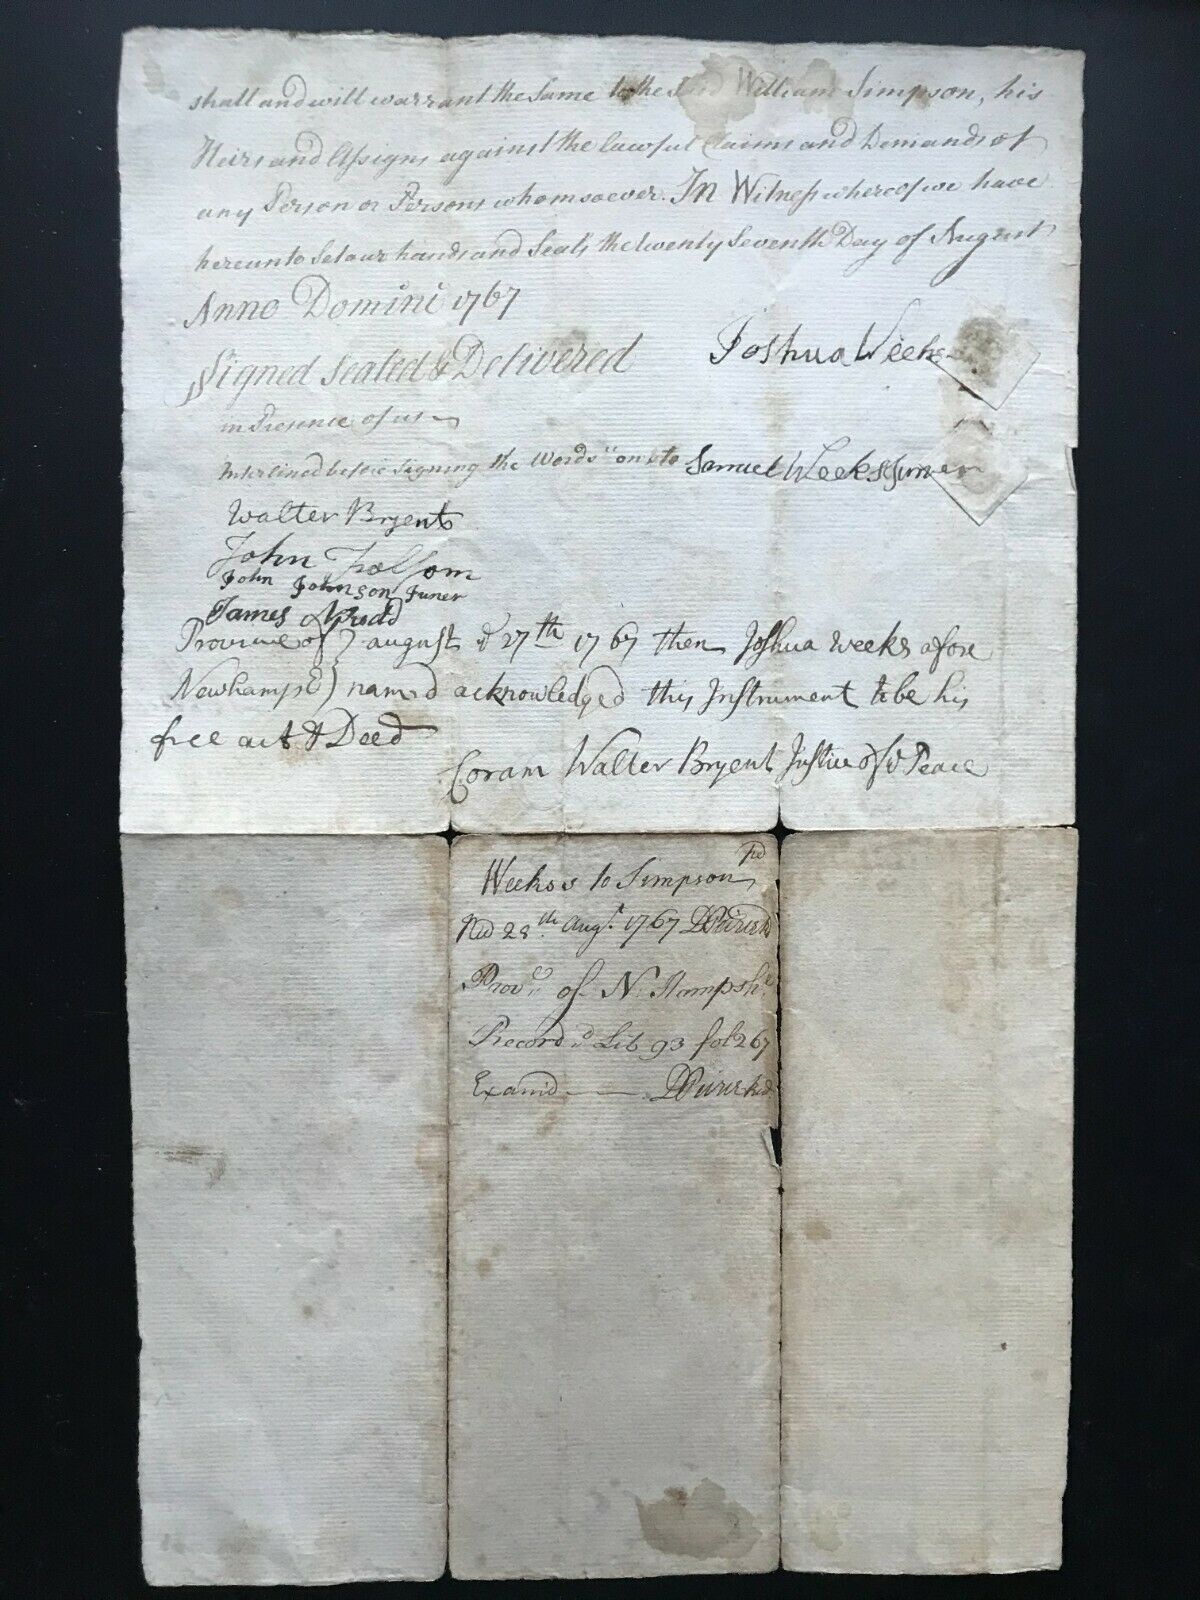 shall and will warrant the same to the Said William Simpson, his
Heirs and Assigns against the lawful Claims and Demands of
any Person or Persons whomsoever. In Witness whereof we have
hereunto Set our hands and Seals the twenty Seventh Day of August
Anno Domini 1767
Signed Sealed & Delivered
in Presence of us
Interlined before Signing the Words "
Joshua Weeks
Samuel Weeks Juner
Walter Bryent
John Folsom
John Johnson Juner
James
Province of } august ye 27th 1767 then Joshua Weeks afore
Newhampr } named acknowledged this Instrument to be his
free act & Deed
Coram Walter Bryent Justice of ye Peace
Weeks's to Simpson
pd
Red 28th Augt. 1767
Prove. of N. Hampshe.
Record'd Lib 93 fol 267
Examd